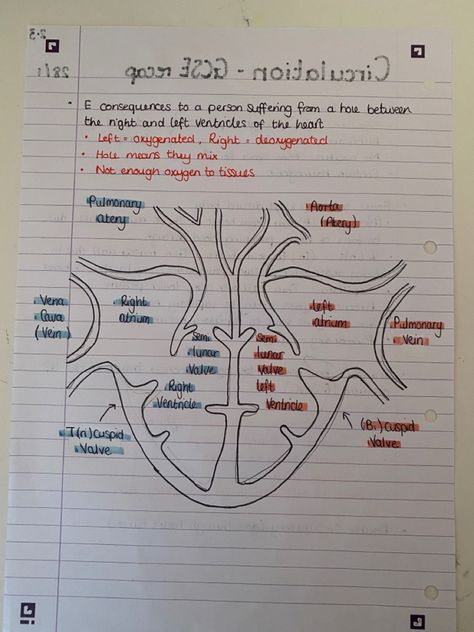 2.3
Circulation - GCSE recap
28/1
• E consequences to a person suffering from a hole between
the right and left ventricles of the heart
• Left = oxygenated, Right = deoxygenated
• Hole means they mix
• Not enough oxygen to tissues
Pulmonary
atery
Aorta
(Atery)
Vena
Cava
(Vein)
Right
atrium
Left
atrium
Pulmonary
Vein
Semi
lunar
Valve
Semi
lunar
Valve
Right
Ventricle
Left
Ventricle
T(ri)Cuspid
Valve
(Bi)Cuspid
Valve